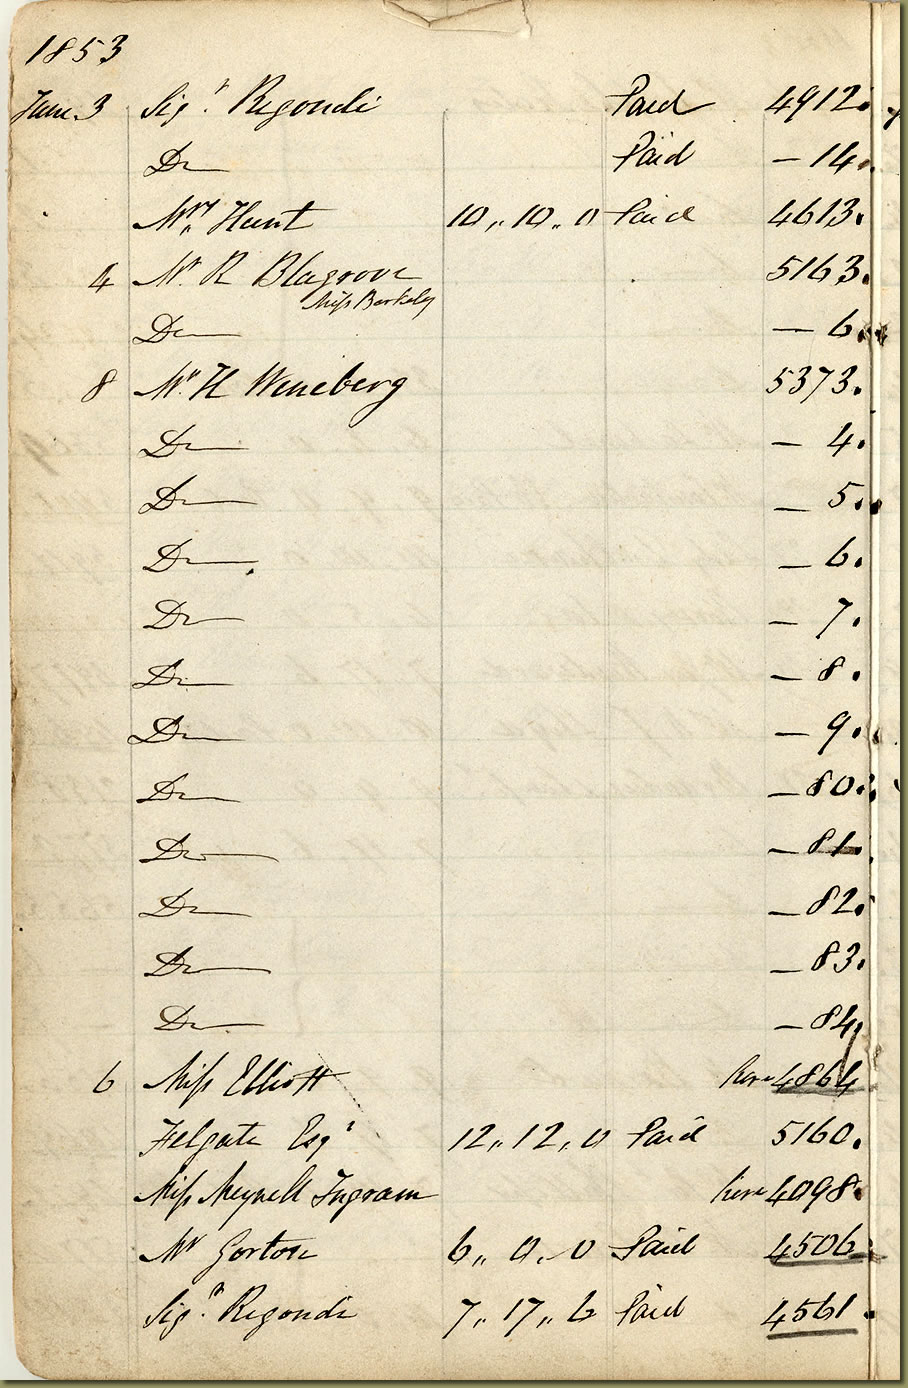 1853
June 3 Sigr. Regondi Paid 4912.
Do Paid — 14.
Mrs. Hunt 10,, 10,, 0 Paid 4613.
4 Mr. R Blagrove 5163.
Miss Berkeley
Do — 6.
8 Mr. H Weneberg 5373.
Do — 4.
Do — 5.
Do — 6.
Do — 7.
Do — 8.
Do — 9.
Do — 80.
Do — 81.
Do — 82.
Do — 83.
Do — 84.
6 Miss Elliott 4864
Felgate Esqr 12,, 12,, 0 Paid 5160.
Miss Meynell Ingram 4098.
Mr Gorton 6,, 0,, 0 Paid 4506
Sigr. Regondi 7,, 17,, 6 Paid 4561.